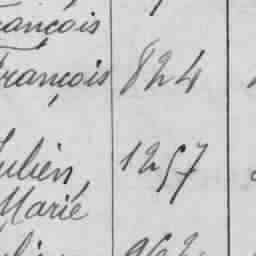 ançois
rançois 824
ulien, 1257
Marie
962